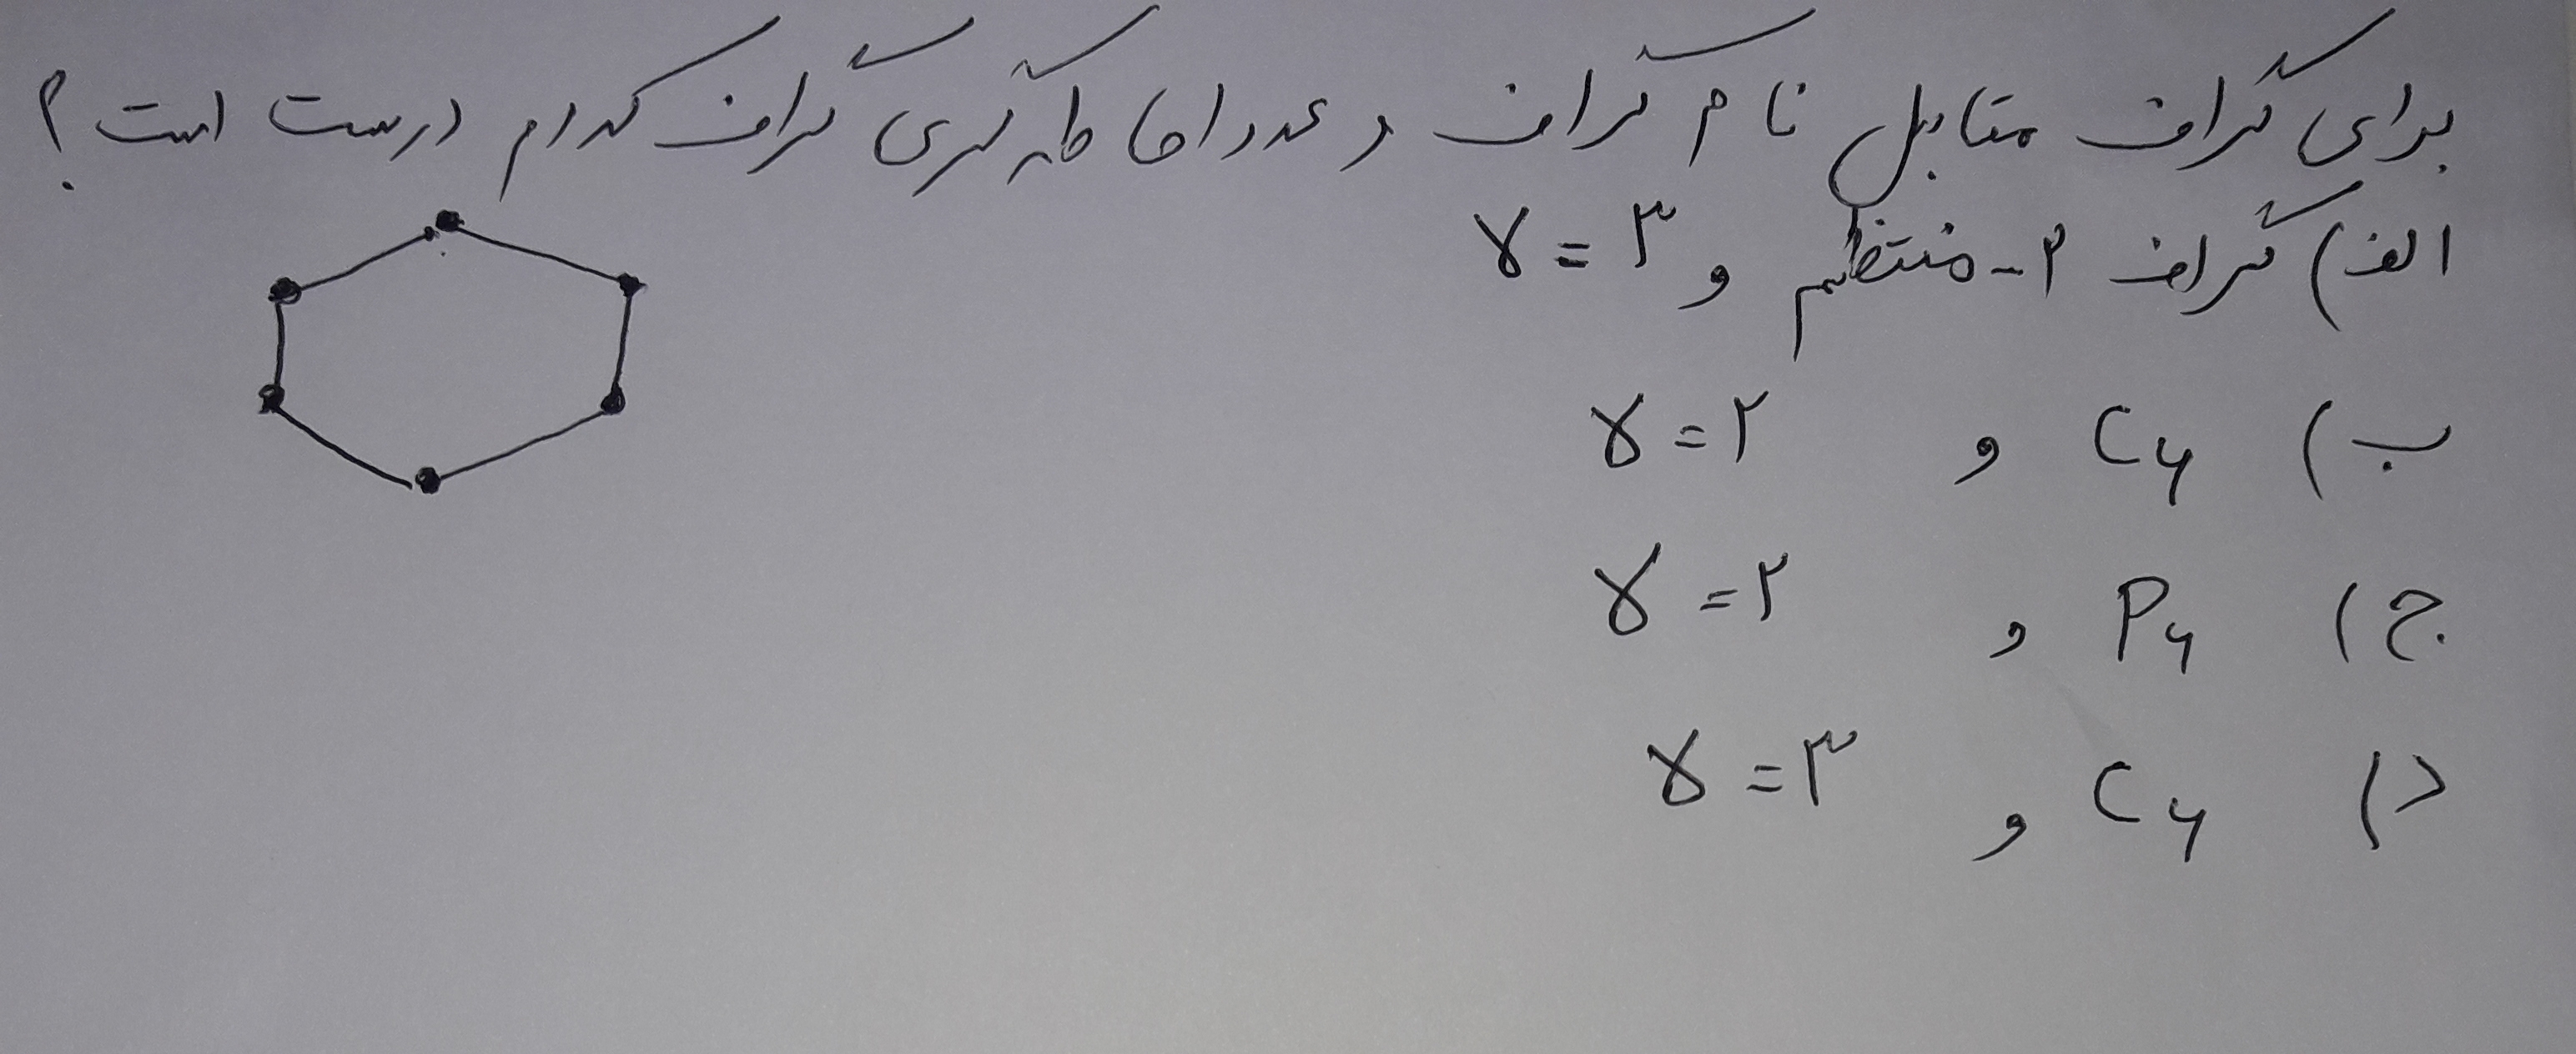 برای گراف مقابل نام گراف و عدد احاطه گری گراف کدام درست است ؟
الف) گراف ۲-منتظم و γ = ۳
ب) C۶ و γ = ۲
ج) P۶ و γ = ۲
د) C۶ و γ = ۳